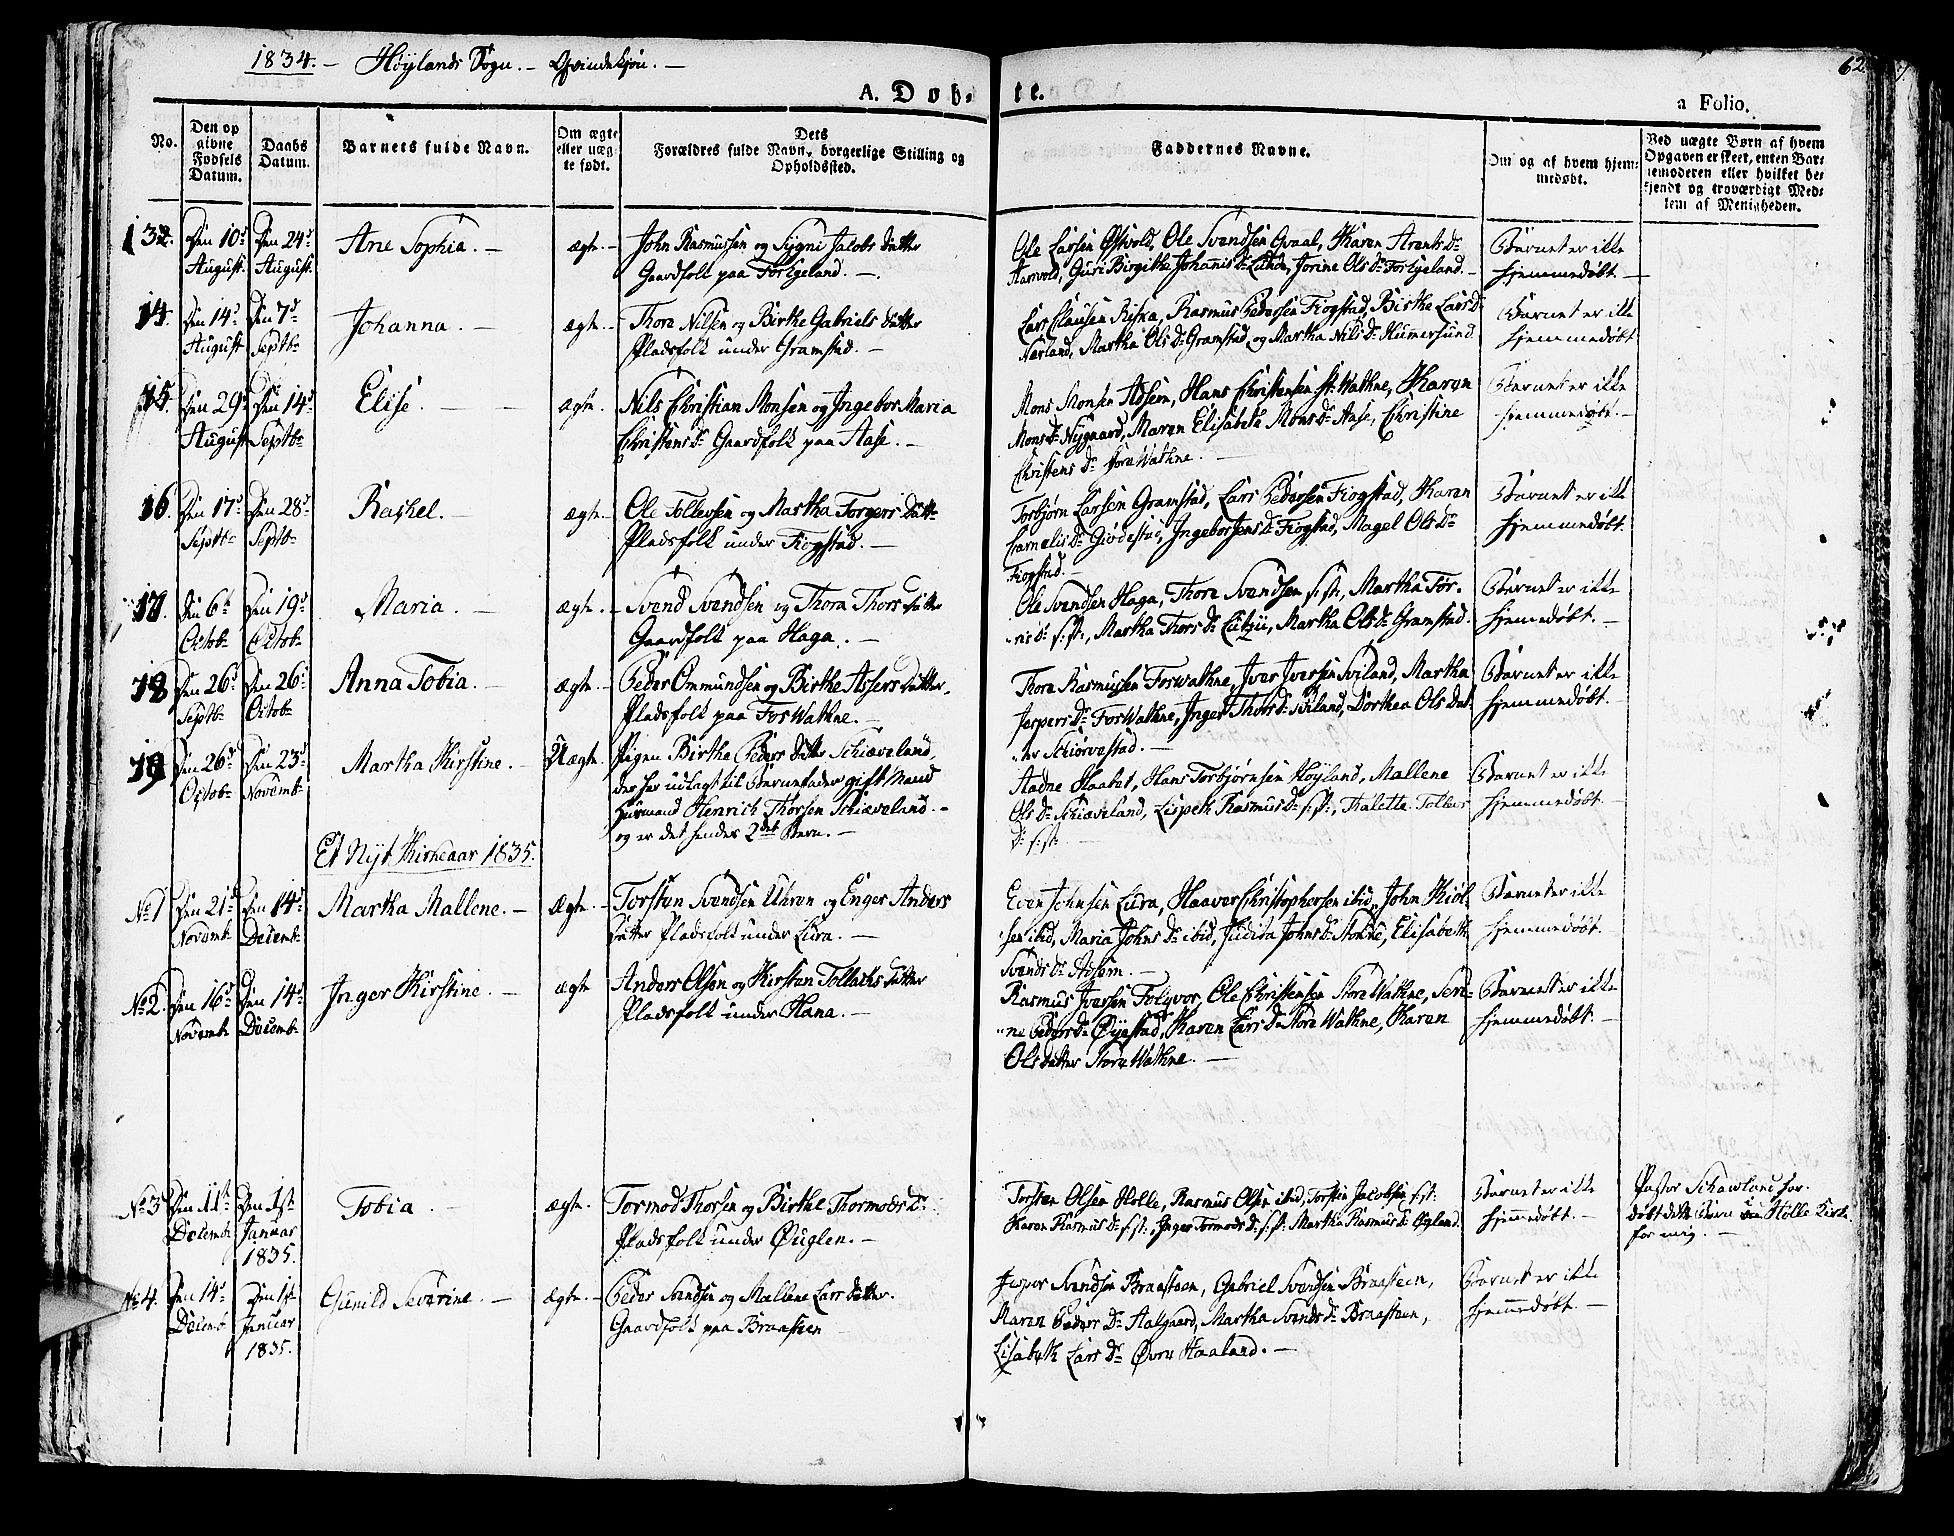 1834. – Høylands Sogn. – Qvindekjøn. –
62
A. Døbte.
a Folio.
No.
Den op
givne
Fødsels
Datum.
Daabs
Datum.
Barnets fulde Navn.
Om ægte
eller uæg
te født.
Dets
Forældres fulde Navn, borgerlige Stilling og
Opholdssted.
Faddernes Navne.
Om og af hvem hjem-
medøbt.
Ved uægte Børn af hvem
Opgaven er skeet, enten Bar-
nemoderen eller hvilket be-
kjendt og troværdigt Med-
lem af Menigheden.
Den 10d August. Den 24d August. Ane Sophia. – ægte. –
John Rasmussen og Sygni Jacobs datter
Gaardfolk paa Forlgeland. –
Ole Larsen Østvold, Ole Svendsen Gvaal, Karen Arents Dr
Guri Birgithe Johannis Dr Lunde, Jorine Ols Dr –
Barnet er ikke
hjemmedøbt –
14. Den 14d August Den 7d Septbr Johanna. – ægte. –
Thore Nilsen og Birthe Gabriels datter
Pladsfolk under Gramstad. –
Lars Clausen Riska, Rasmus Pedersen Fiogstad, Birthe Lars Dr
Nærland, Martha Ols Dr Gramstad og Martha Nils Dr Hummersund
Barnet er ikke
hjemmedøbt
15. Den 29d August Den 14d Septbr Elise. – – ægte.
Nils Christian Monsen og Ingebor Maria
Christens Dr Gaardfolk paa Aase. –
Mons Monsen Adsem, Hans Christensen St: Wathne, Karen
Mons Dr Nygaard, Maren Elisabeth Mons Dr Aase, Christine
Christens Dr Store Wathne. –
Barnet er ikke
hjemmedøbt. –
16 Den 17d Septbr Den 28d Septbr Rachel. – ægte. –
Ole Tollevsen og Martha Torgers datter
Pladsfolk under Fiogstad. –
Torbjørn Larsen Gramstad, Lars Pedersen Fiogstad, Karen
Cornelis Dr Giødestad, Ingebor Jens Dr Fiogstad, Magel Ols Dr
Fiogstad. –
Barnet er ikke
hjemmedøbt.
17. Den 6te Octobr Den 19d Octobr Maria. – ægte. –
Svend Svendsen og Thora Thors datter
Gaardfolk paa Haga. –
Ole Svendsen Haga, Thore Svendsen s: st:, Martha Tør-
ris Dr s: st:, Martha Thors Dr Lutzii, Martha Ols Dr Gramstad.
Barnet er ikke
hjemmedøbt. –
18 Den 26d Septbr Den 26d Octobr Anna Tobia. – ægte. –
Peder Ommundsen og Birthe Assers datter,
Pladsfolk paa Fos Wathne. –
Thore Rasmussen Foswathne, Iver Iversen Sviland, Martha
Jespers Dr Fos Wathne, Inger Thors Dr Sviland, Dorthea Ols dat-
ter Schiørvestad. –
Barnet er ikke
hjemmedøbt. –
19 Den 26d Octobr Den 23d Novembr Martha Kirstine. – Uægte.
Pigen Birthe Peders datter Schiæveland,
der har udlagt til Barnefader gift Mand
Huusmand Henrich Thorsen Schiæveland. –
og er det hendes 2det Barn. –
Aadne Haabet, Hans Torbjørnsen Høyland, Mallene
Ols Dr Schiæveland, Lispeth Rasmus Dr s: st:, Thalette Tollevs
Dr s: st:
Barnet er ikke
hjemmedøbt. –
Et Nyt Kirkeaar 1835.
No 1 Den 21d Novembr Den 14d Decembr Martha Mallene. – Ægte. –
Torsten Svendsen Uhren og Enger Anders
datter Pladsfolk under Lura. –
Even Johnsen Lura, Haaver Christophersen ibid, John Kiøl-
sen ibid, Maria Johns Dr ibid, Judita Johns Dr Stokke, Elisabeth
Svends Dr Adsem. –
Barnet er ikke
hjemmedøbt. –
No 2. Den 16d Novembr Den 14d Decembr Inger Kirstine. – ægte
Anders Olsen og Kirsten Tollachs datter
Pladsfolk under Hana. –
Rasmus Iversen Folgvor, Ole Christensen Store Wathne, Sere-
ne Peders Dr Øyestad, Karen Lars Dr Store Wathne, Karen
Ols datter Store Wathne. –
Barnet er ikke
hjemmedøbt. –
No 3 Den 11te Decembr Den 1ste Januar 1835. Tobia. – ægte.
Tormod Thorsen og Birthe Thormods Dr
Pladsfolk under Øuglen. –
Torsten Olsen Holle, Rasmus Olsen ibid, Torsten Jacobsen s: st:
Karen Rasmus Dr s: st:, Inger Tormods Dr s: st: Martha Rasmus Dr
Barnet er ikke
hjemmedøbt. –
Pastor
døbt dette Barn i Holle Kirke
for mig. –
No 4. Den 14d Decembr Den 1ste Januar 1835. Gunild Severine. – ægte. –
Peder Svendsen og Mallene Lars datter.
Gaardfolk paa Braasteen
Jesper Svendsen Braasteen, Gabriel Svendsen Braasteen,
Karen Peders Dr Aalgaard, Martha Svends Dr Braasteen,
Lisabeth Lars Dr Øvre Haaland. –
Barnet er ikke
hjemmedøbt. –